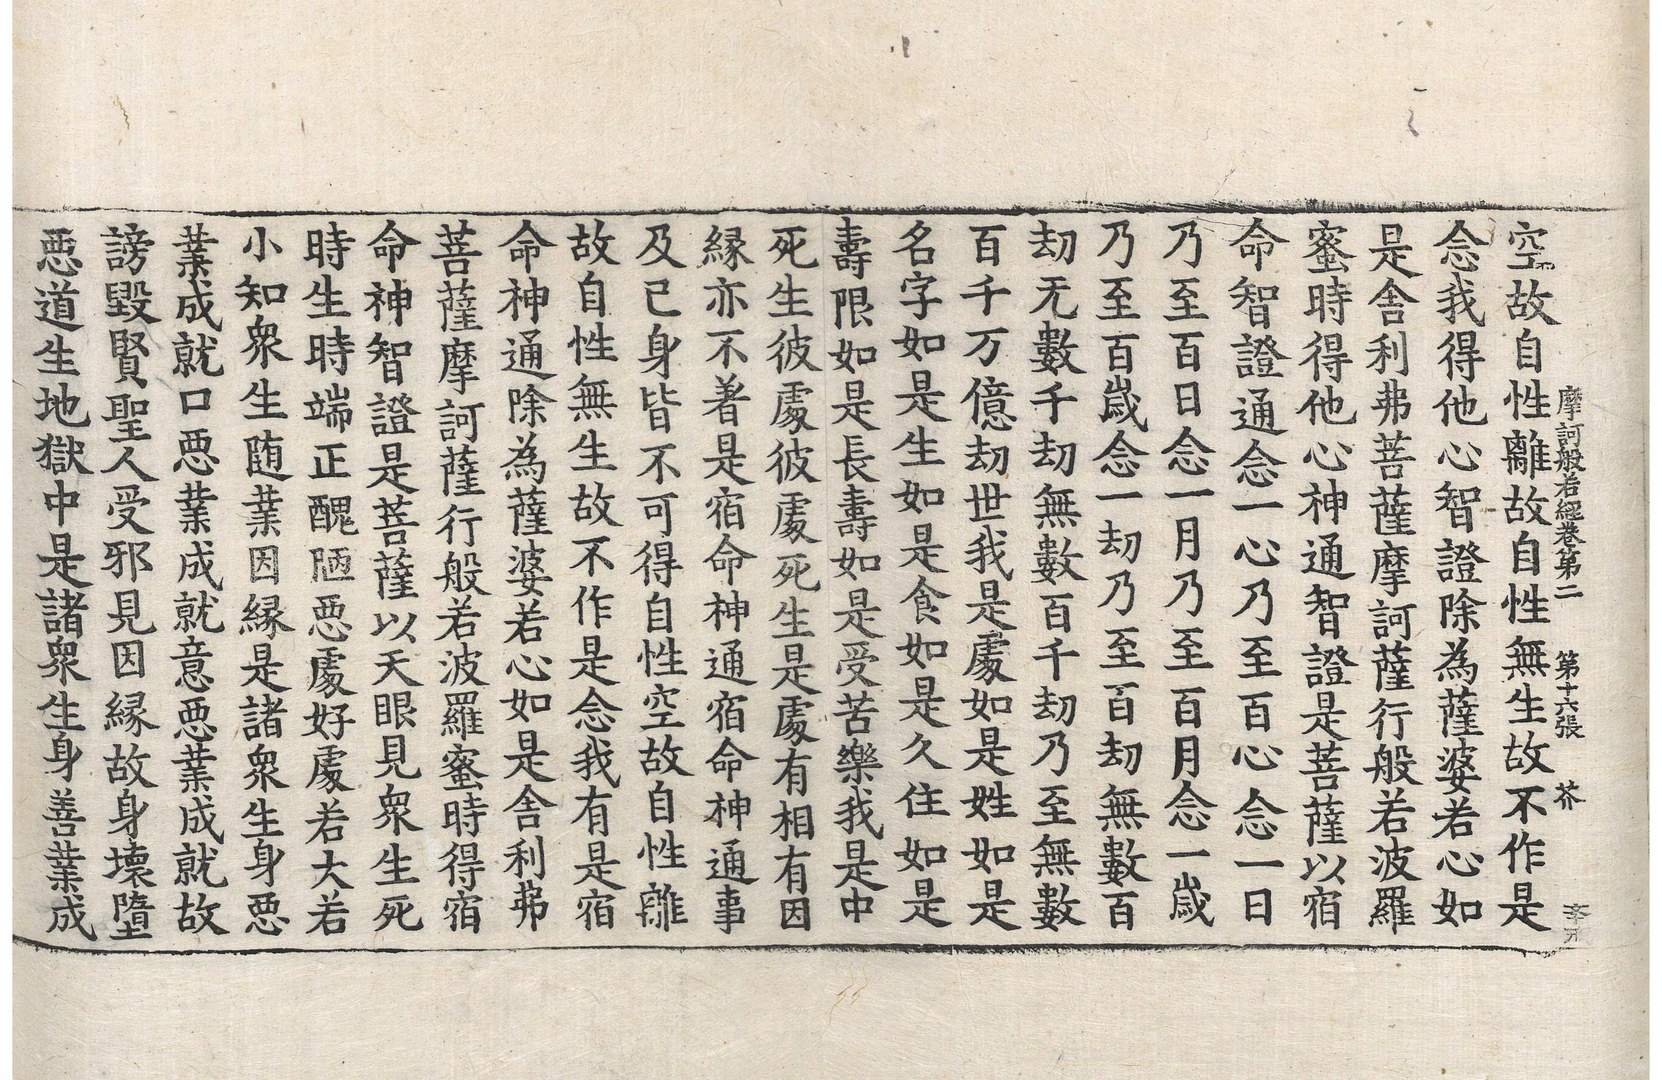 摩訶般若經卷第二 第十六張 芥
空故自性離故自性無生故不作是
念我得他心智證除為薩婆若心如
是舍利弗菩薩摩訶薩行般若波羅
蜜時得他心神通智證是菩薩以宿
命智證通念一心乃至百心念一日
乃至百日念一月乃至百月念一歲
乃至百歲念一刧乃至百刧無數百
刧无數千刧無數百千刧乃至無數
百千万億刧世我是處如是姓如是
名字如是生如是食如是久住如是
壽限如是長壽如是受苦樂我是中
死生彼處彼處死生是處有相有因
緣亦不著是宿命神通宿命神通事
及己身皆不可得自性空故自性離
故自性無生故不作是念我有是宿
命神通除為薩婆若心如是舍利弗
菩薩摩訶薩行般若波羅蜜時得宿
命神智證是菩薩以天眼見衆生死
時生時端正醜陋惡處好處若大若
小知衆生随業因緣是諸衆生身惡
業成就口惡業成就意惡業成就故
謗毀賢聖人受邪見因緣故身壞墮
惡道生地獄中是諸衆生身善業成